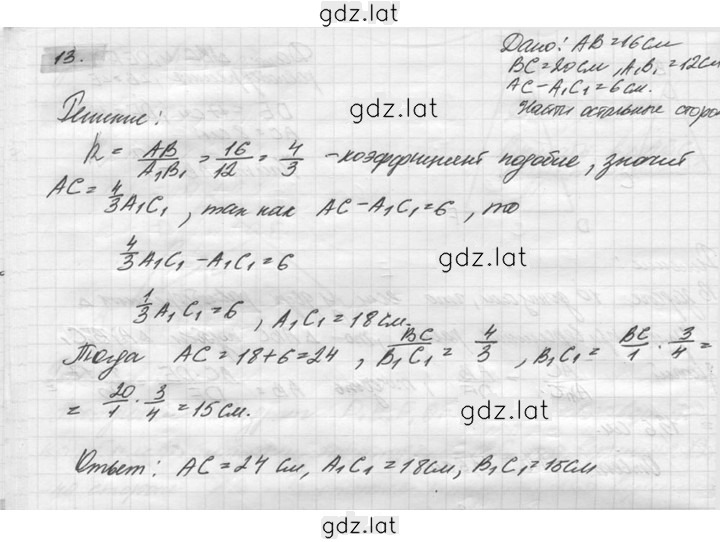 gdz.lat
13.
Дано: AB=16см
BC=20см, A₁B₁=12см
AC-A₁C₁=6см.
Найти остальные сторон
Решение:
gdz.lat
k = AB/A₁B₁ = 16/12 = 4/3 - коэффициент подобие, значит
AC = 4/3 A₁C₁, так как AC-A₁C₁=6, то
4/3 A₁C₁ - A₁C₁ = 6
gdz.lat
1/3 A₁C₁ = 6, A₁C₁ = 18см.
Тогда AC = 18+6=24, BC/B₁C₁ = 4/3, B₁C₁ = BC/1 · 3/4 =
= 20/1 · 3/4 = 15см.
gdz.lat
Ответ: AC=24см, A₁C₁=18см, B₁C₁=15см
gdz.lat